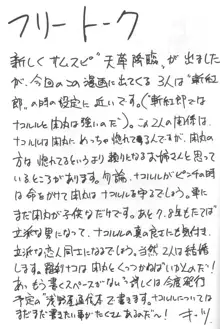 フリートーク
新しくサムスピ"天草降臨"が出ました
が、今回のこの漫画に出てくる3人は"斬紅
郎"の時の設定に近いです。("斬紅郎では
ナコルルと閑丸は強いのだ")。この2人の関係は、
ナコルルは閑丸にめっちゃ惚れてるんですが、閑丸の
方は惚れてるというより頼りになるお姉さんと思って
いるところがあります。勿論、ナコルルがピンチの時
は命をかけて閑丸はナコルルを守るでしょう。単に
まだ閑丸が子供なだけです。あと7、8年もたてば
立派な男になって、ナコルルの真の気持にも気付き、
立派な恋人同士になるでしょう。当然2人は結婚
します。羅刹ナコは閑丸とくっつかねばいかんのだ!
あ、もう書くスペースがない 詳しくは今度発行
予定の 通信 で書きます。ナコルルについては
まだまだ書きたい事がたくさんあるぞー!